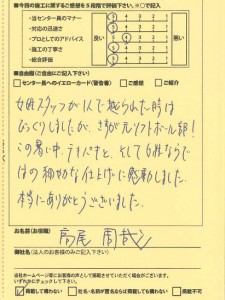 ■今回の施工に関するご感想を5段階で評価下さい。※○で記入
・当センター長のマナー
・対応の速さ
・プロとしてのアドバイス
・施工の丁寧さ
・総合評価
良い
5 4 3 2 1
5 4 3 2 1
5 4 3 2 1
5 4 3 2 1
5 4 3 2 1
悪い
■自由欄(ご自由にご記入下さい)
□センター長へのイエローカード(警告書) □ご感想 □ご紹介
女性スタッフが1人で来られた時は
びっくりしましたが、さすが元ソフトボール部!
この暑い中、テキパキと、そして女性ならで
はの細やかな仕上げに感動しました。
本当にありがとうございました。
お名前(お客様)
高尾
御社名(法人のお客様のみご記入下さい)
当社ホームページ等にお客様の声として掲載させていただく場合がございます。
いずれかに
して下さい。
掲載して構わない □社名・名前が匿名ならば掲載しても構わない □掲載不可